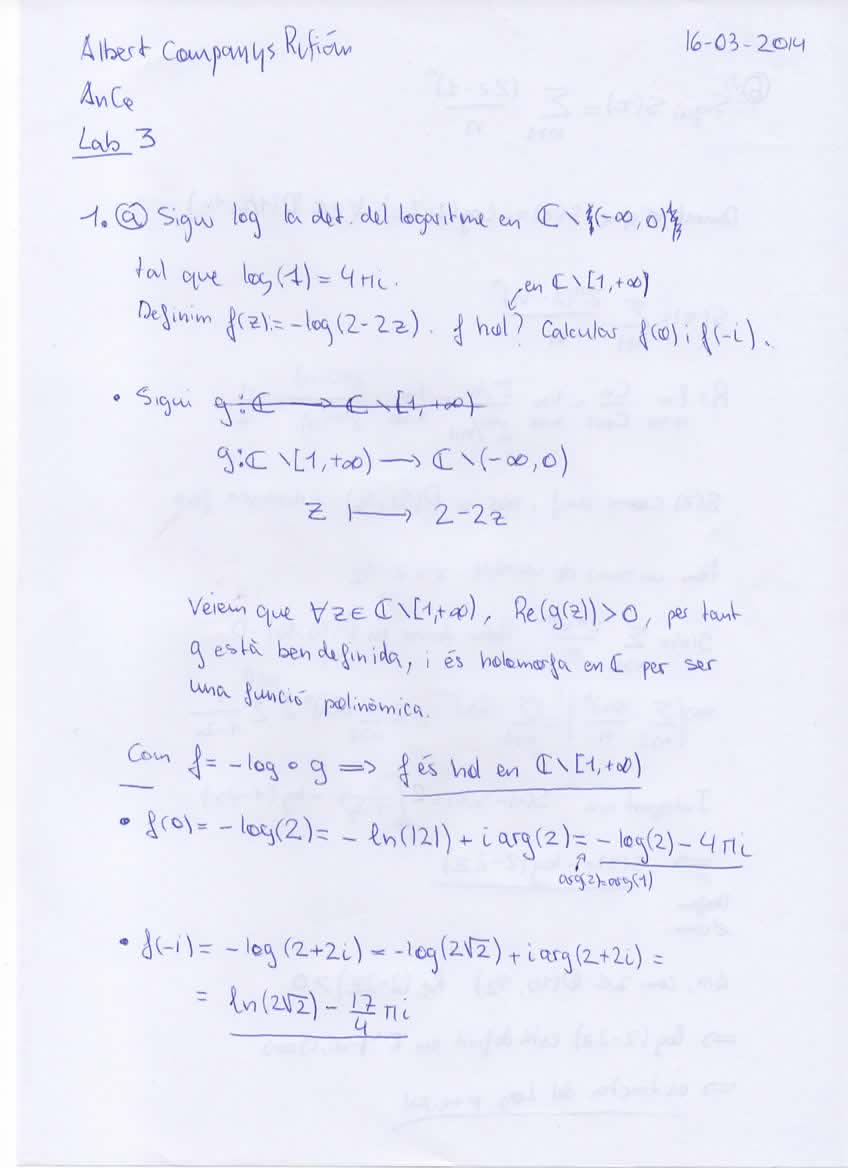 Albert Companys Rufián 16-03-2014
AnCo
Lab 3
1. ⓐ Sigui log la det. del logaritme en ℂ \ (-∞, 0)
tal que log(1) = 4πi.
en ℂ\[1,+∞)
Definim f(z):= -log(2-2z). f hol? Calcular f(0) i f(-i).
• Sigui g: ℂ → ℂ \ [1, +∞)
g: ℂ \ [1, +∞) → ℂ \ (-∞, 0)
z ↦ 2-2z
Veiem que ∀z∈ ℂ\[1,+∞), Re(g(z))>0, per tant
g està ben definida, i és holomorfa en ℂ per ser
una funció polinòmica.
Com f = -log ∘ g ⟹ f és hol en ℂ\[1,+∞)
• f(0) = -log(2) = - ln(|2|) + i arg(2) = - log(2) - 4πi
arg(2)=arg(1)
• f(-i) = -log (2+2i) = -log(2√2) + i arg(2+2i) =
= ln(2√2) - 17/4 πi